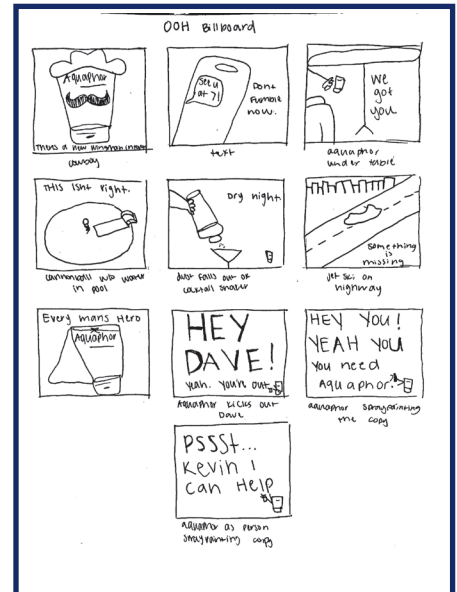 OOH Billboard
Aquaphor
Theres a new wingman in town
cowboy
See u
at 7!
Dont
Fumble
now.
text
We
got
you
aquaphor
under table
THIS ISNt right.
cannonball w/o water
in pool
Dry night
dust falls out of
cocktail shaker
Something
is
missing
jet ski on
highway
Every mans Hero
Aquaphor
HEY
DAVE!
Yeah. You're out
Aquaphor kicks out
Dave
HEY YOU!
YEAH YOU
You need
Aquaphor
aquaphor spraypainting
the copy
PSSSt...
Kevin I
can Help
aquaphor as person
spraypainting copy